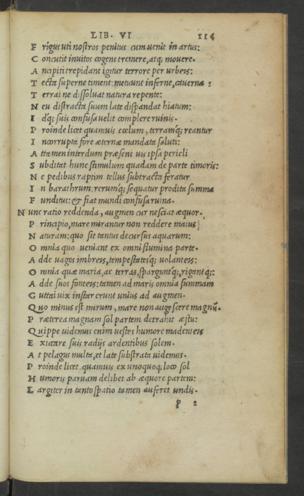 LIB. VI 114
F rigus uti nostros penitus cum uenit in artus:
C oncutit inuitos cogens tremere, atq; mouere.
A ncipiti trepidant igitur terrore per urbeis:
T ecta superne timent: metuunt inferne, cauernas
T errai ne dissoluat natura repente:
N eu distracta suum late dispandat hiatum:
I dq; suis confusa uelit complere ruinis.
P roinde licet quamuis cœlum, terramq; reantur
I ncorrupta fore æternæ mandata saluti:
A ttamen interdum præsens uis ipsa pericli
S ubditat hunc stimulum quadam de parte timoris:
N e pedibus raptim tellus subtracta feratur
I n barathrum: rerumq; sequatur prodita summa
F unditus: & fiat mundi confusa ruina.
N unc ratio reddunda, augmen cur nesciat æquor.
P rincipio, mare mirantur non reddere maius
N aturam: quo sit tantus decursus aquarum:
O mnia quo ueniant ex omni flumina parte.
A dde uagos imbreis, tempestatesq; uolanteis:
O mnia quæ maria, ac terras, sparguntq;, rigantq;:
A dde suos fonteis: tamen ad maris omnia summam
G uttai uix instar erunt unius ad augmen.
Q uo minus est mirum, mare non augescere magnum.
P ræterea magnam sol partem detrahit æstu:
Q uippe uidemus enim uesteis humore madenteis
E xiccare suis radijs ardentibus solem.
A t pelagus multa, et late substrata uidemus.
P roinde licet quamuis ex unoquoq; loco sol
H umoris paruam delibet ab æquore partem:
L argiter in tanto spatio tamen auferet undis.
p 2